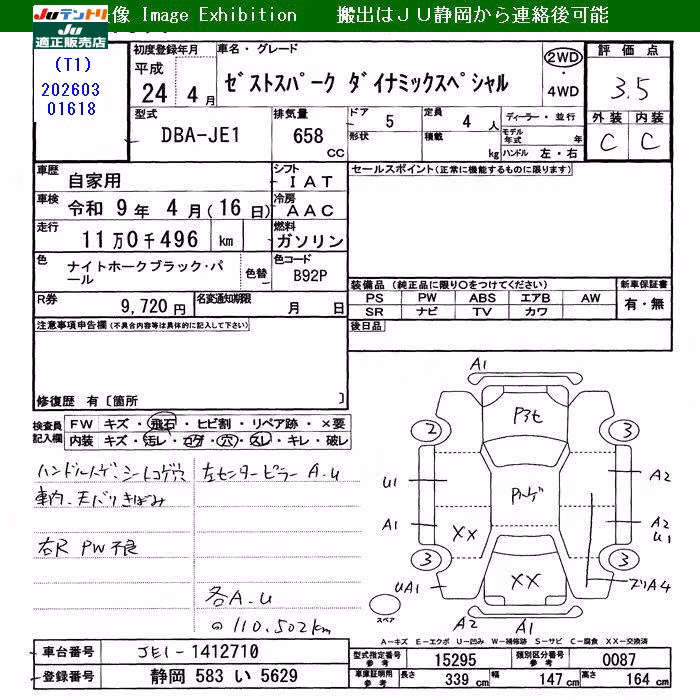 JUテントリ 像 Image Exhibition 搬出はJU静岡から連絡後可能
JU
適正販売店
(T1)
202603
01618
初度登録年月 車名・グレード
平成 24年 4月 ゼストスパーク ダイナミックスペシャル 2WD ・ 4WD
評価点 3.5
外装 内装
C C
型式 DBA-JE1
排気量 658 CC
ドア 5 定員 4 人
形状 積載 kg
ディーラー・並行
モデル年式 年
ハンドル 左・右
車歴 自家用
シフト IAT
車検 令和 9年 4月(16日)
冷房 AAC
走行 11万0千496 km
燃料 ガソリン
色 ナイトホークブラック・パール 色替
色コード B92P
R券 9,720円
名変通知期限 月 日
セールスポイント(正常に機能するものに限ります)
装備品 (純正品に限り○をつけてください) 新車保証書
PS PW ABS エアB AW 有・無
SR ナビ TV カワ
後日品
注意事項申告欄(不具合内容等は具体的に記入して下さい)
修復歴 有〔箇所 〕
検査員記入欄
FW キズ・飛石・ヒビ割・リペア跡・×要
内装 キズ・汚レ・コゲ・穴・スレ・キレ・破レ
ハンドルハゲ、シートコゲ穴
車内、天バリきばみ
右R PW不良
左センターピラー A.U
各A.U
110,502km
A1
2
3
P3セ
Pハゲ
U1
A1
XX
A2
A2
U1
3
3
UA1
XX
A2
A1
ズリA4
スペア
A-キズ E-エクボ U-凹み W-補修跡 S-サビ C-腐食 XX-交換済
車台番号 JE1-1412710
登録番号 静岡 583 い 5629
型式指定番号 参考 15295 類別区分番号 参考 0087
車庫証明用 参考 長さ 339 cm 幅 147 cm 高さ 164 cm